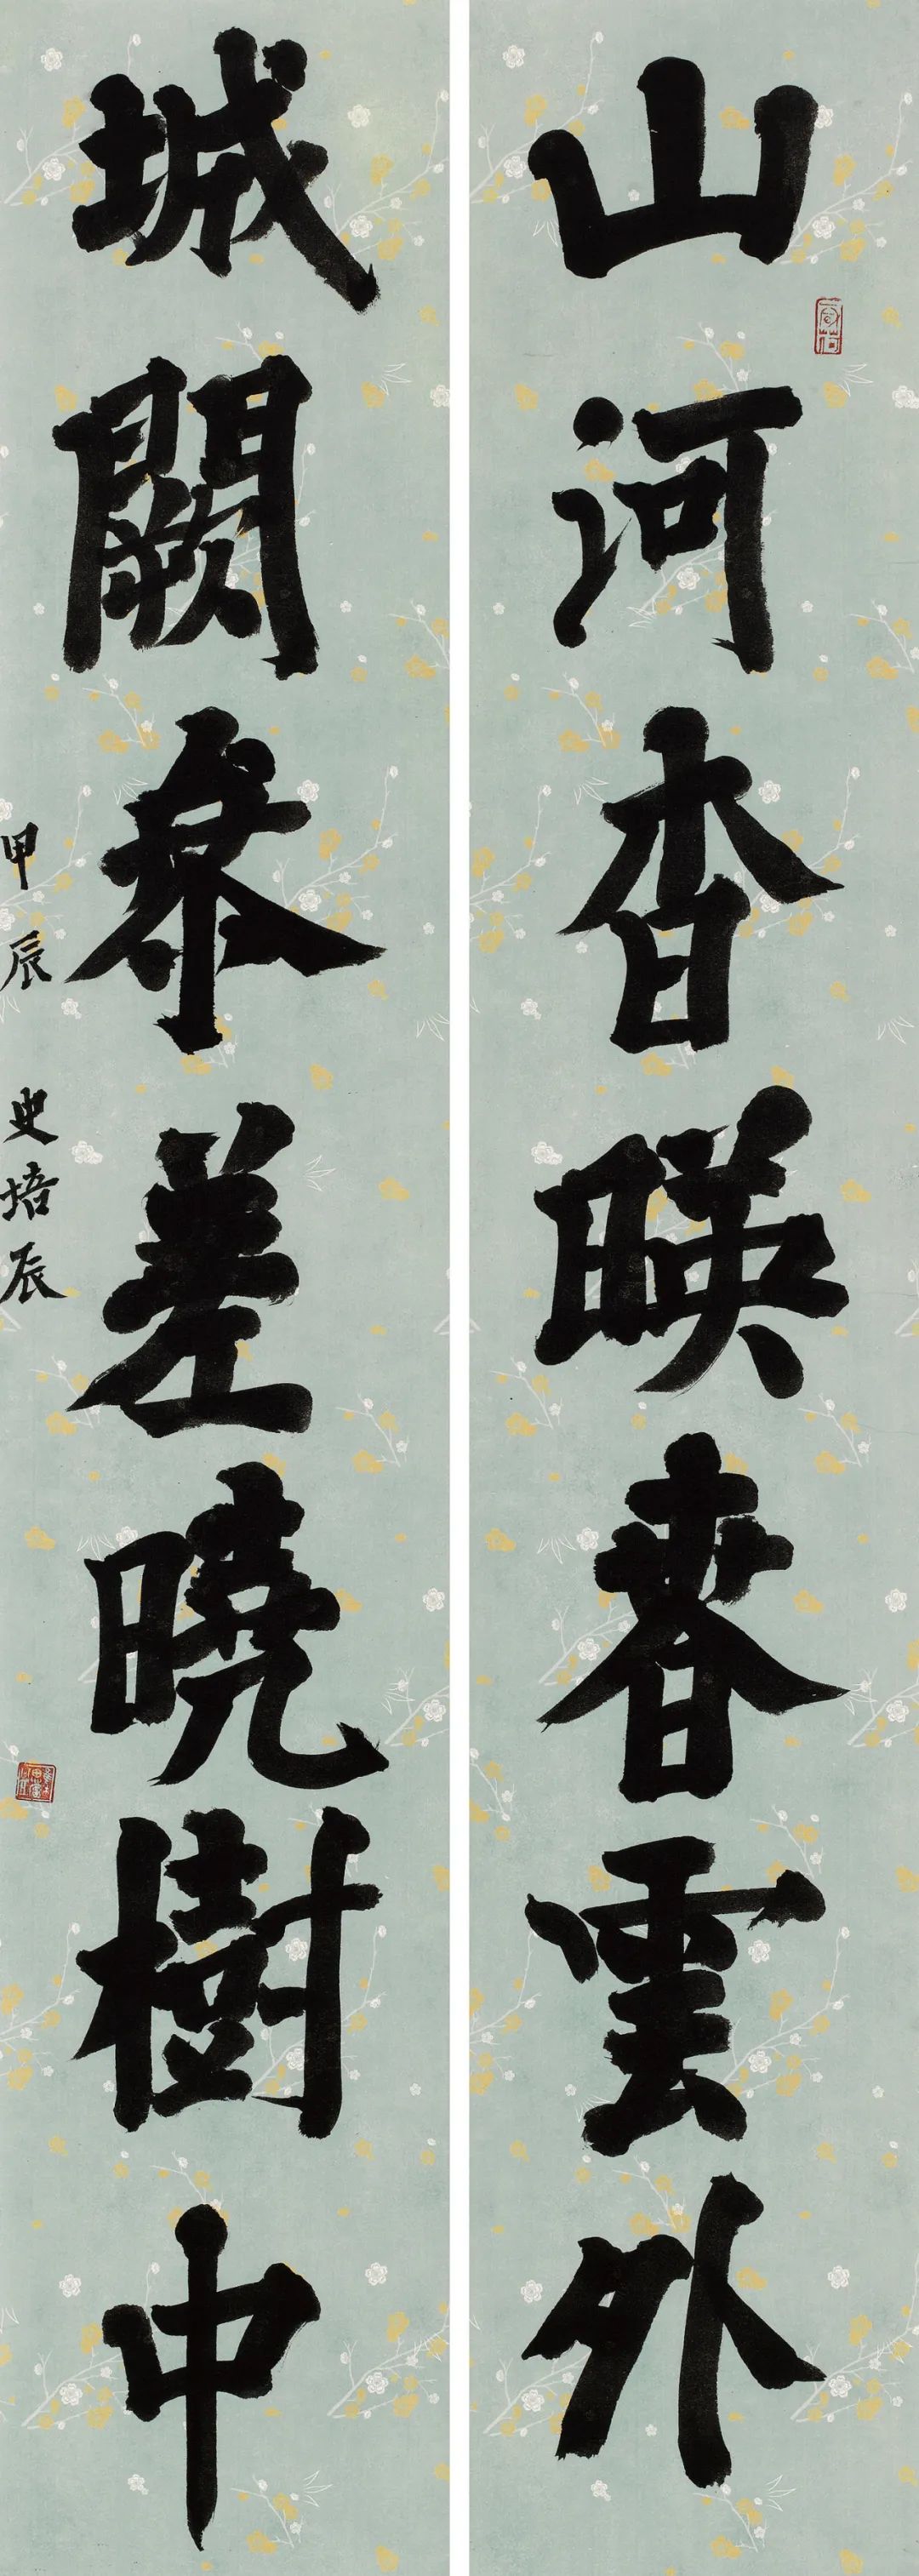 山河杳暎春雲外
城闕參差曉樹中
甲辰 史培辰